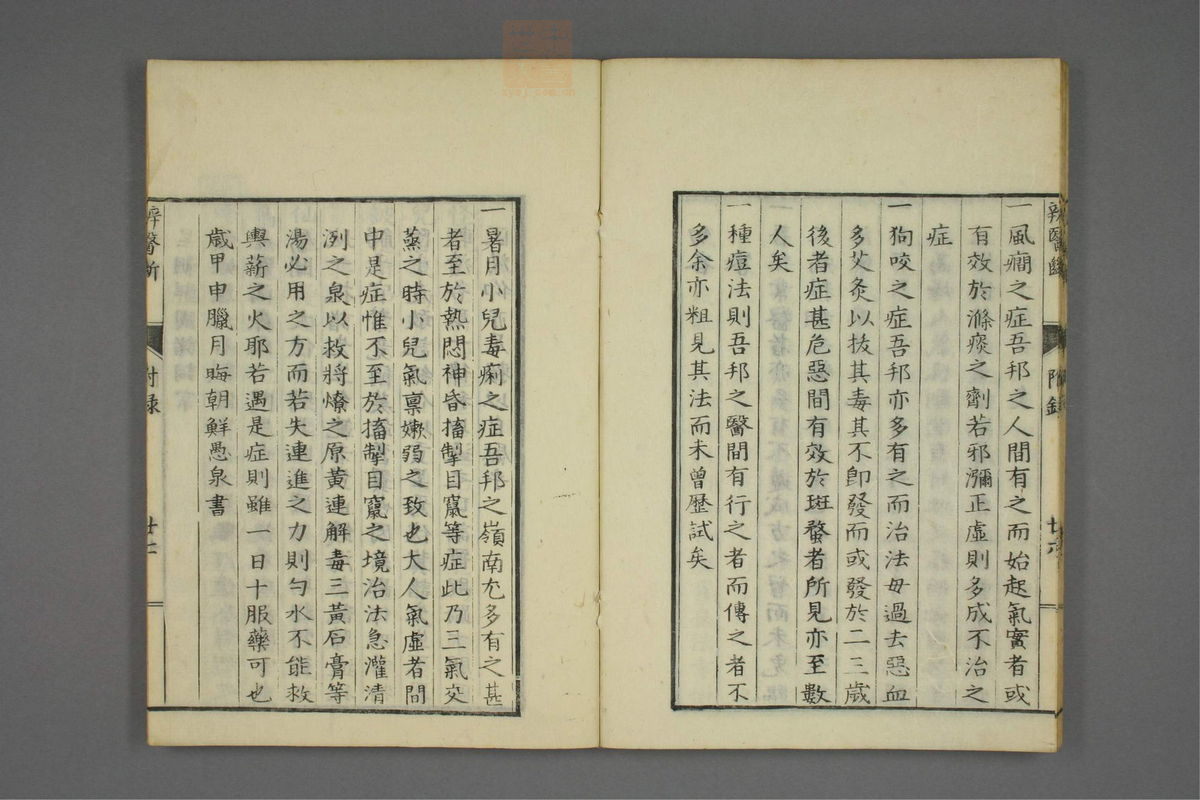 辨醫斷 附録 廿六
一風癇之症吾邦之人間有之而始起氣實者或
有效於滌痰之劑若邪瀰正虛則多成不治之
症
一狗咬之症吾邦亦多有之而治法毋過去惡血
多艾灸以拔其毒其不即發而或發於二三歲
後者症甚危惡間有效於斑蝥者所見亦至數
人矣
一種痘法則吾邦之醫間有行之者而傳之者不
多余亦粗見其法而未曾歷試矣
一暑月小兒毒痢之症吾邦之嶺南尤多有之甚
者至於熱悶神昏搐掣目竄等症此乃三氣交
蒸之時小兒氣稟嫩弱之致也大人氣虛者間
中是症惟不至於搐掣目竄之境治法急灌清
冽之泉以救將燎之原黃連解毒三黃石膏等
湯必用之方而若失連進之力則勺水不能救
輿薪之火耶若遇是症則雖一日十服藥可也
歲甲申臘月晦朝鮮愚泉書
辨醫斷 附録 廿七